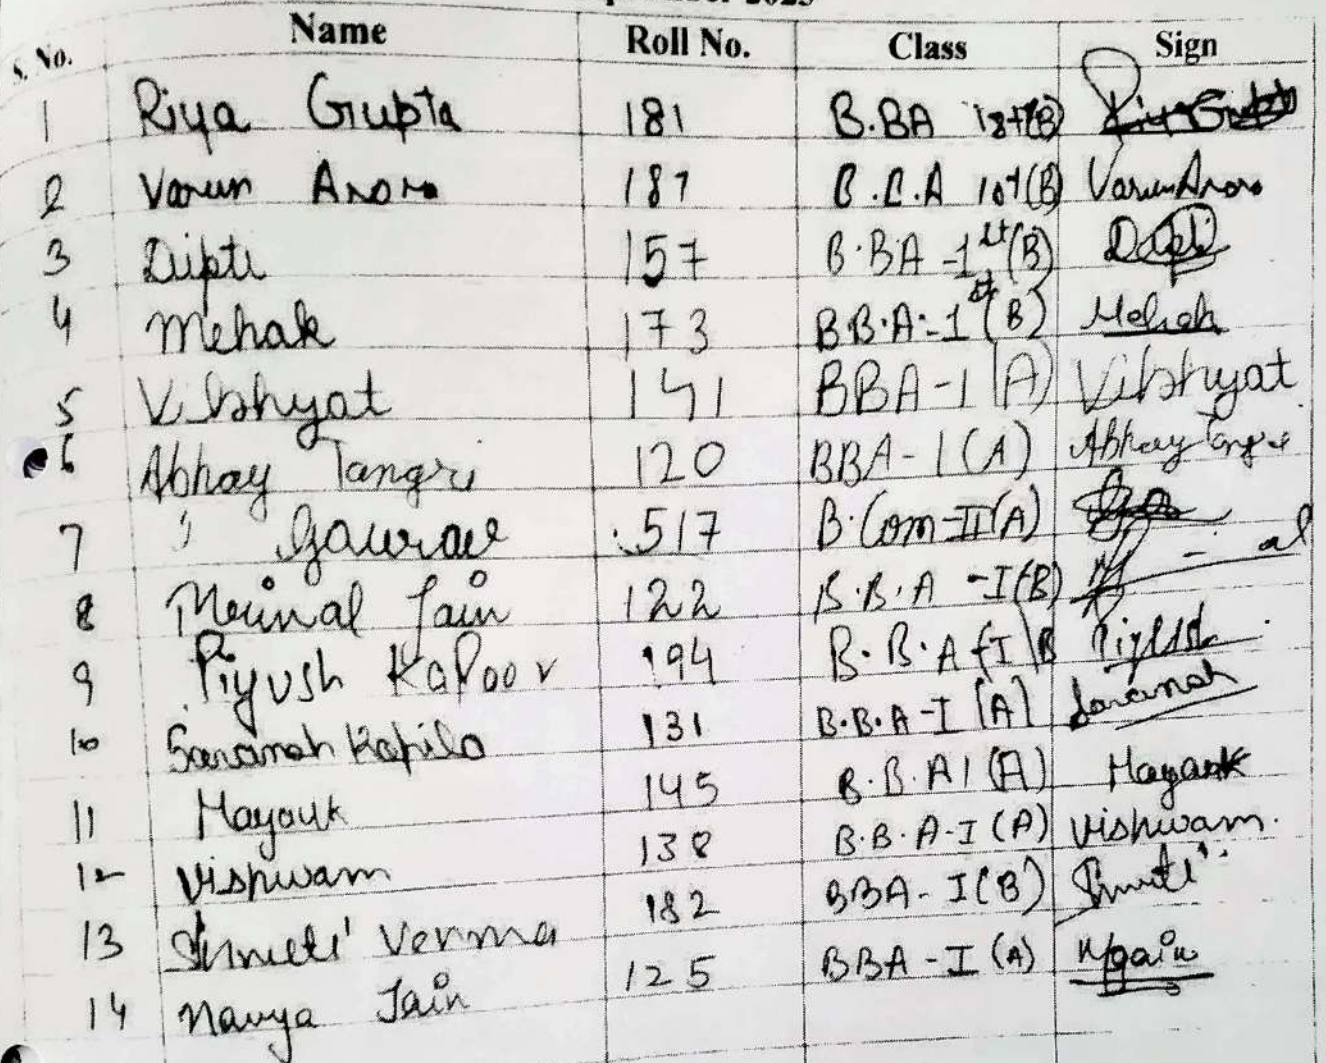 2023
S. No. Name Roll No. Class Sign
1 Riya Gupta 181 B.BA 1st(B) Riya Gupta
2 Varun Arora 187 B.C.A 1st(B) Varun Arora
3 Dipti 157 B.BA -1st(B) Dipti
4 Mehak 173 BB.A.-1st(B) Mehak
5 Vibhyat 141 BBA-I (A) Vibhyat
6 Abhay Tangri 120 BBA-I (A) Abhay Tangri
7 Gaurav 517 B.Com-II(A)
8 Mrinal Jain 122 B.B.A -I(B)
9 Piyush Kapoor 194 B.B.A (I) B Piyush
10 Saransh Kapila 131 B.B.A-I (A) Saransh
11 Mayank 145 B.B.A I (A) Mayank
12 Vishwam 138 B.B.A-I (A) Vishwam.
13 Shruti Verma 182 BBA-I(B) Shruti
14 Navya Jain 125 BBA-I (A) Njain